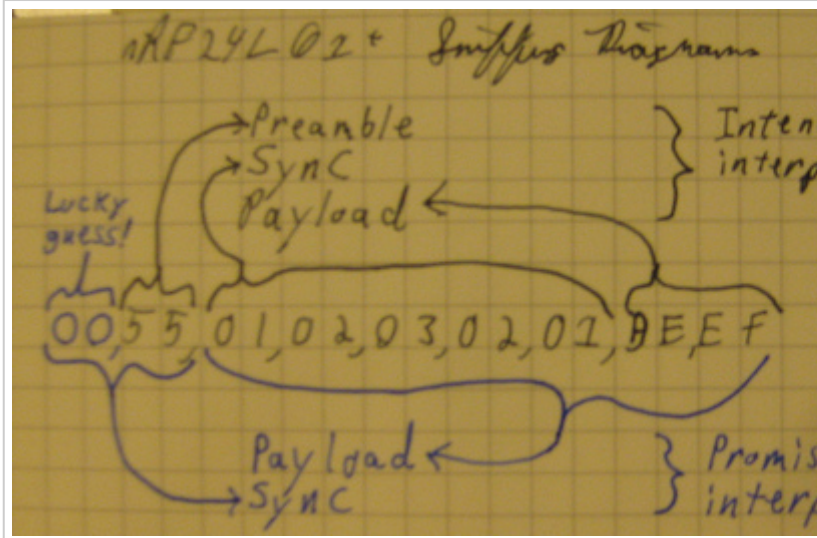 nRF24L01+ Sniffing Diagrams
Preamble
Sync
Payload
Inten
interp
Lucky
guess!
00,55,01,02,03,02,01,BE,EF
Payload
Sync
Promis
interp